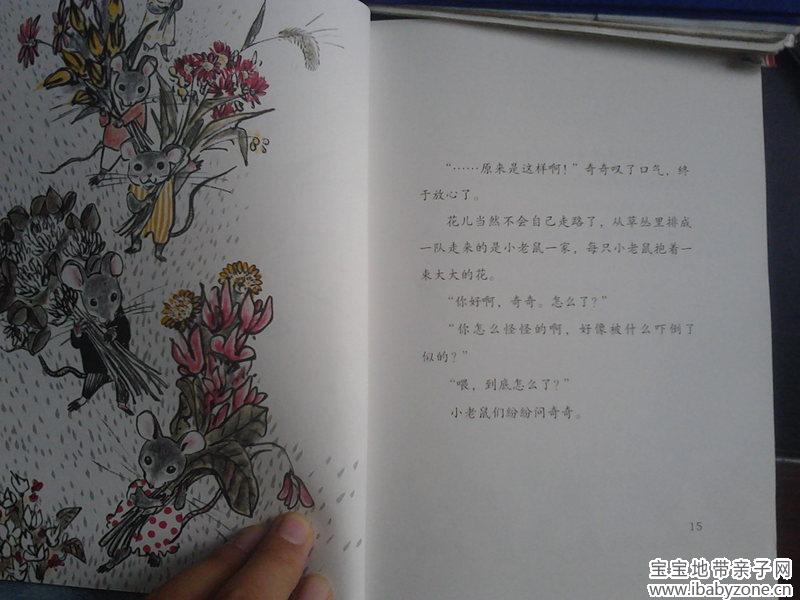 “……原来是这样啊！”奇奇叹了口气，终
于放心了。
花儿当然不会自己走路了，从草丛里排成
一队走来的是小老鼠一家，每只小老鼠抱着一
束大大的花。
“你好啊，奇奇。怎么了？”
“你怎么怪怪的啊，好像被什么吓倒了
似的？”
“喂，到底怎么了？”
小老鼠们纷纷问奇奇。
15
宝宝地带亲子网
www.ibabyzone.cn